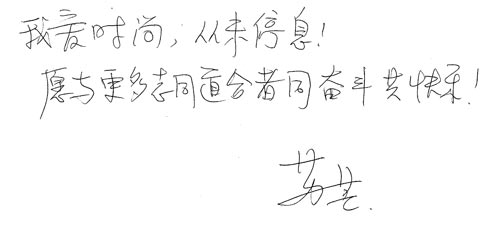 我爱时尚，从未停息！
愿与更多志同道合者同奋斗共快乐！